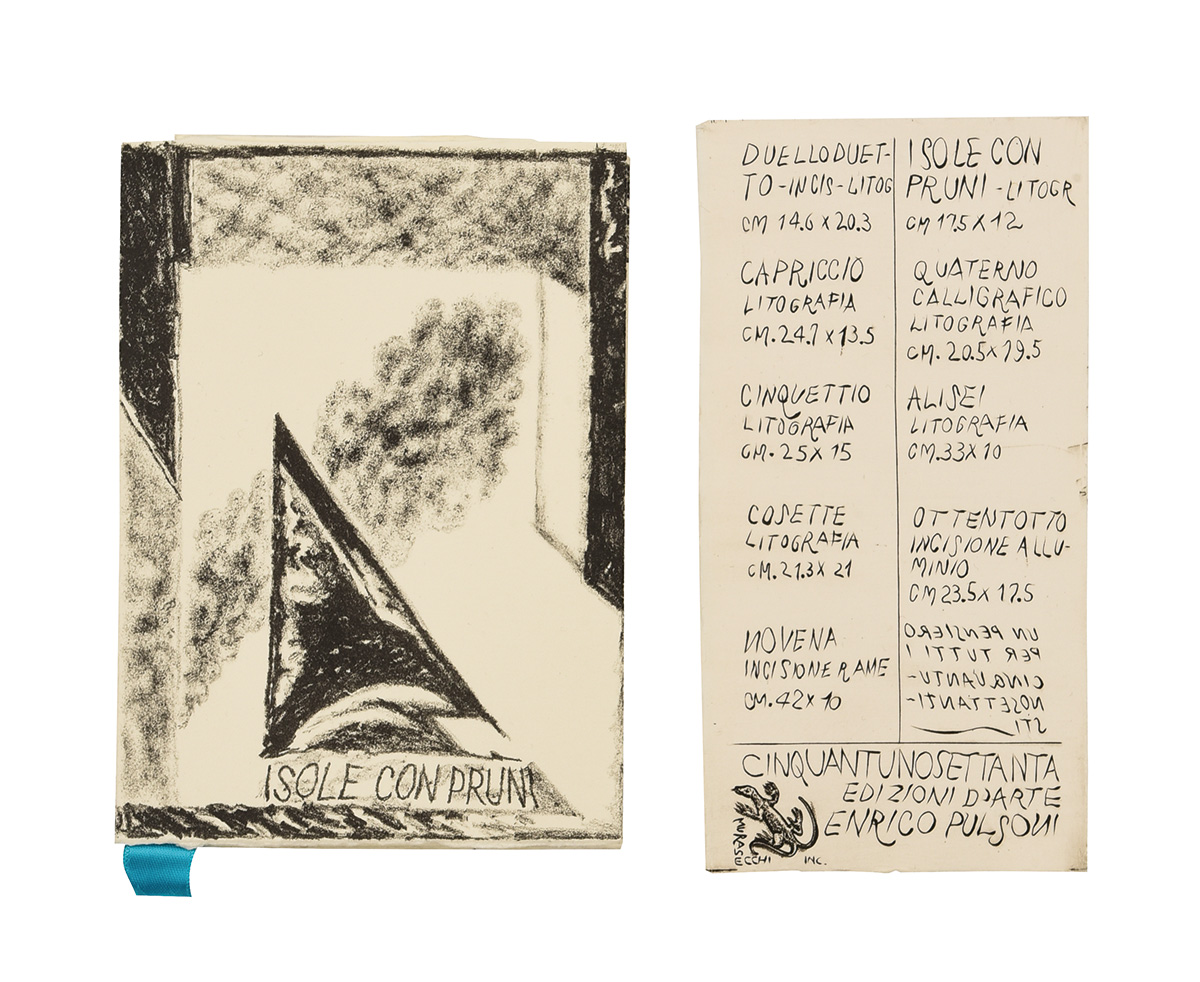 ISOLE CON PRUNI
DUELLO DUET-
TO - INCIS - LITOG
CM 14.6 X 20.3
CAPRICCIO
LITOGRAFIA
CM. 24.7 X 13.5
CINQUETTIO
LITOGRAFIA
CM. 25X 15
COSETTE
LITOGRAFIA
CM. 21.3X 21
NOVENA
INCISIONE RAME
CM. 42X 10
ISOLE CON
PRUNI - LITOGR
CM 17.5 X 12
QUATERNO
CALLIGRAFICO
LITOGRAFIA
CM. 20.5X 19.5
ALISEI
LITOGRAFIA
CM. 33X 10
OTTENTOTTO
INCISIONE ALLU-
MINIO
CM 23.5X 17.5
UN PENSIERO
PER TUTTI I
CINQUANTU-
NOSETTANTI-
STI
CINQUANTUNOSETTANTA
EDIZIONI D'ARTE
ENRICO PULSONI
MURASECCHI INC.